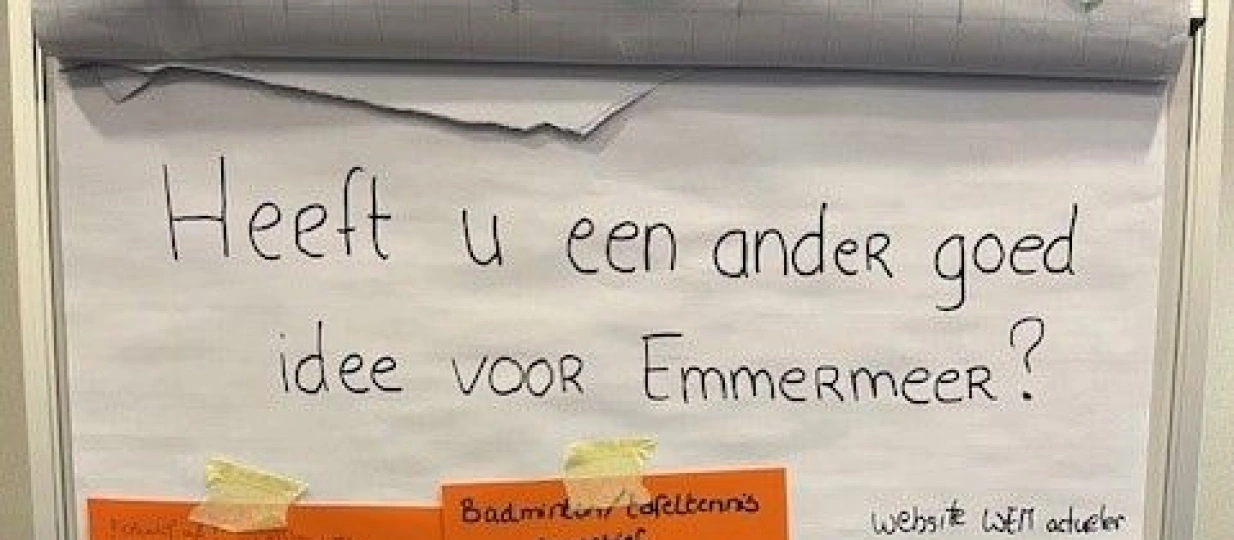 Heeft u een ander goed
idee voor Emmermeer?
Badminton/tafeltennis
website WEM actueler